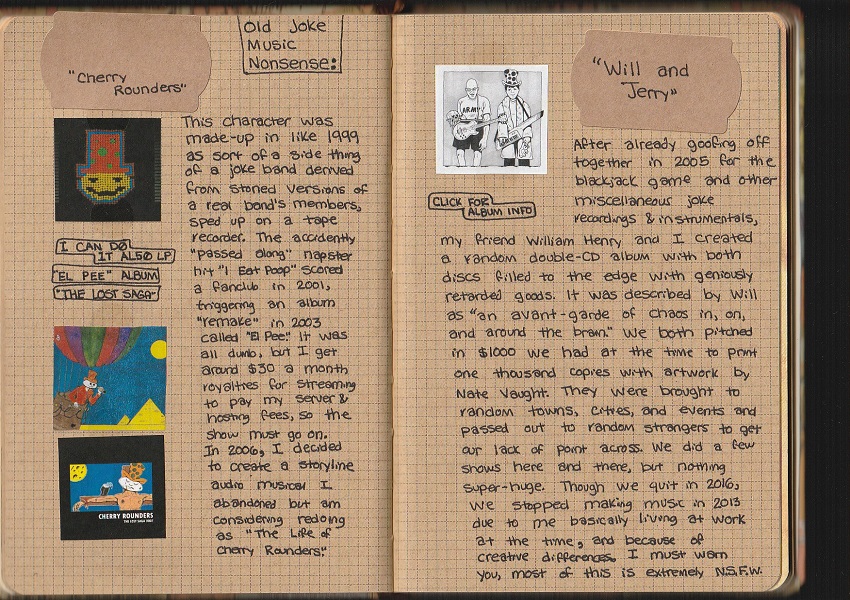 "Cherry
Rounders"
Old Joke
Music
Nonsense:
This character was
made-up in like 1999
as sort of a side thing
of a joke band derived
from stoned versions of
a real band's members,
sped up on a tape
recorder. The accidently
"passed along" napster
hit "I Eat Poop" scored
a fanclub in 2001,
triggering an album
"remake" in 2003
called "El Pee." It was
all dumb, but I get
around $30 a month
royalties for streaming
to pay my server &
hosting fees, so the
show must go on.
In 2006, I decided
to create a storyline
audio musical I
abandoned but am
considering redoing
as "The Life of
Cherry Rounders".
I CAN DO
IT ALSO LP
"EL PEE" ALBUM
"THE LOST SAGA"
CHERRY ROUNDERS
THE LOST SAGA
"Will and
Jerry"
ARMY
CLICK FOR
ALBUM INFO
After already goofing off
together in 2005 for the
blackjack game and other
miscellaneous joke
recordings & instrumentals,
my friend William Henry and I created
a random double-CD album with both
discs filled to the edge with geniously
retarded goods. It was described by Will
as "an avant-garde of chaos in, on,
and around the brain." We both pitched
in $1000 we had at the time to print
one thousand copies with artwork by
Nate Vaught. They were brought to
random towns, cities, and events and
passed out to random strangers to get
our lack of point across. We did a few
shows here and there, but nothing
super-huge. Though we quit in 2016,
we stopped making music in 2013
due to me basically living at work
at the time, and because of
creative differences. I must warn
you, most of this is extremely N.S.F.W.